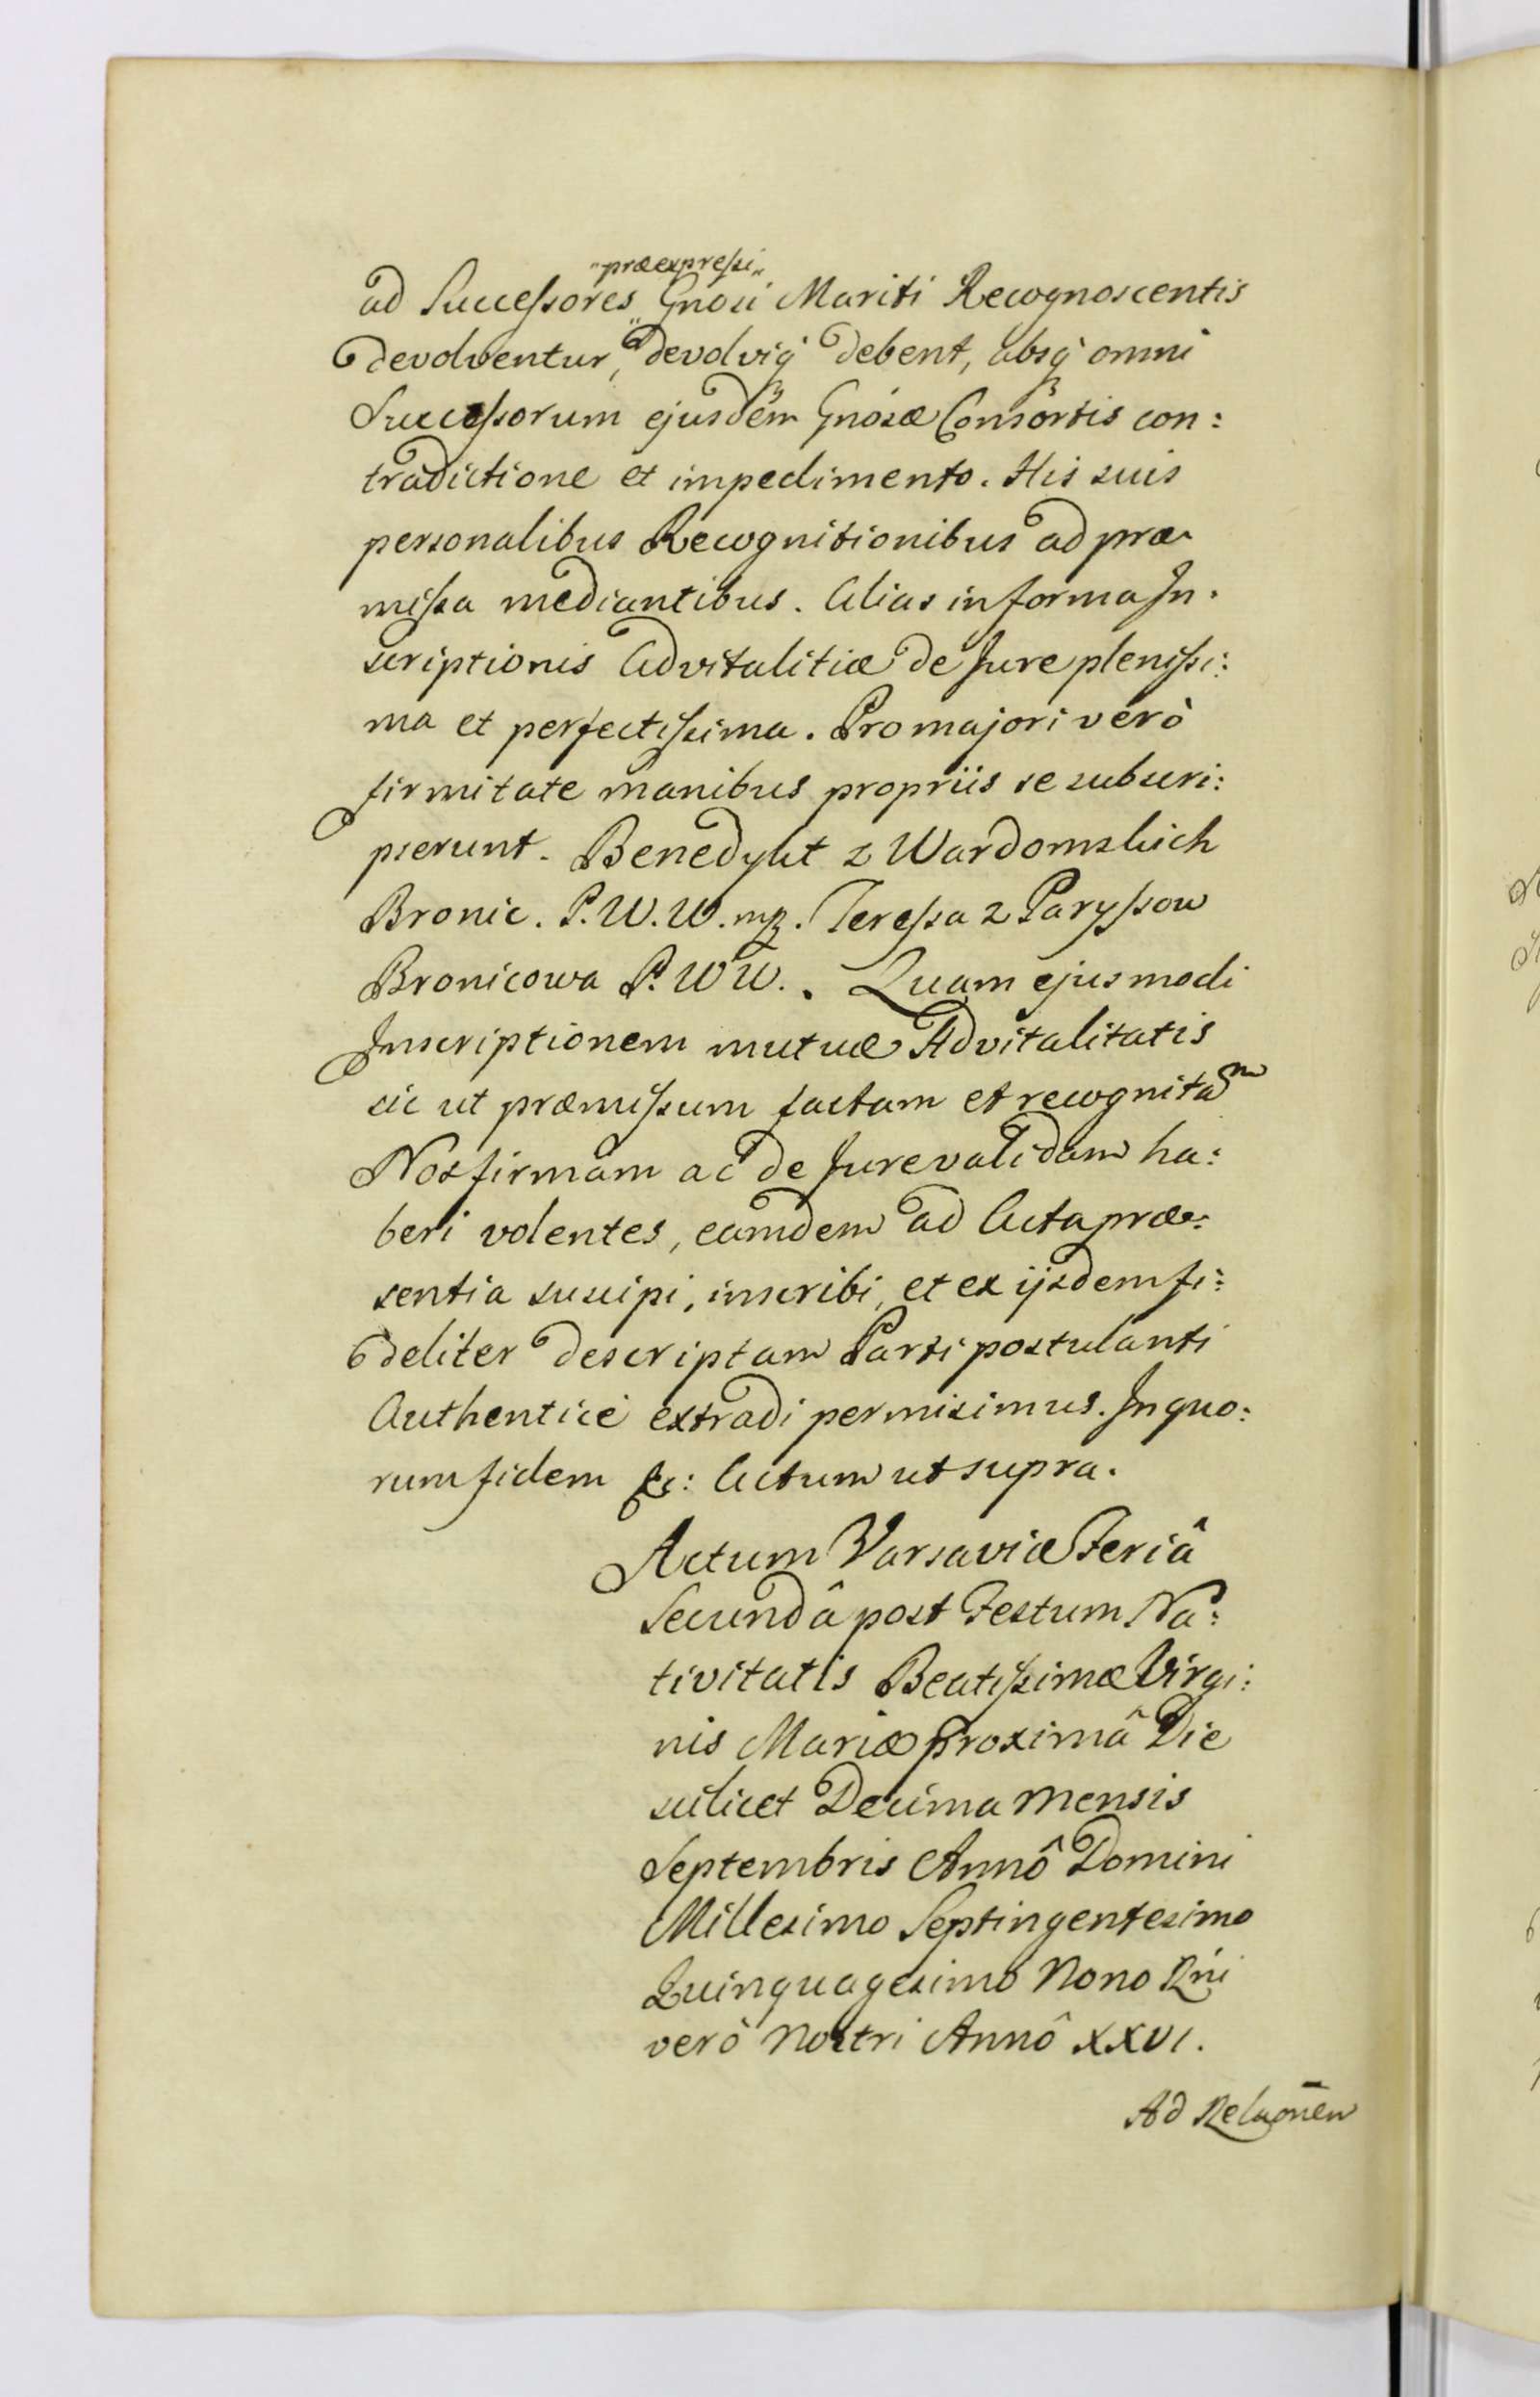 "præexpressi"
ad Successores „ Gnosi Mariti Recognoscentis
devolventur, devolviq̃ debent, absq̃ omni
Successorum ejusdem Gnosæ Consortis con:
tradictione et impedimento. His suis
personalibus Recognitionibus ad præ-
missa mediantibus. Alias in forma In-
scriptionis Advitalitiæ de Jure plenissi:
ma et perfectissima. Pro majori verò
firmitate manibus propriis se subscri:
pserunt. Benedykt z Wardomskich
Bronic. P. W. W. mp. Teressa z Paryssow
Bronicowa P. W W. . Quam ejusmodi
Inscriptionem mutuæ Advitalitatis
sic ut præmissum factam et recognitam
Nos firmam ac de Jure validam ha:
beri volentes, eamdem ad Acta præ:
sentia suscipi, inscribi, et ex ijsdem fi:
deliter descriptam Parti postulanti
Authenticè extradi permisimus. In quo:
rum fidem &c: Actum ut supra.
Actum Varsaviæ Feriâ
Secundâ post Festum Na:
tivitatis Beatissimæ Virgi:
nis Mariæ proximâ Die
scilicet Decima mensis
Septembris Annô Domini
Millesimo Septingentesimo
Quinquagesimo Nono Rñi
verò Nostri Annô XXVI.
Ad Relaõnem